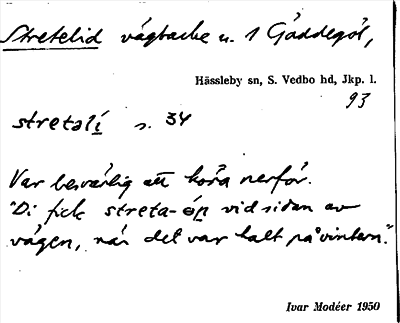 Stretelid vägbacke u. 1 Gäddegöl,
Hässleby sn, S. Vedbo hd, Jkp. l.
93
stretalí s. 34
Var besvärlig att köra nerför.
"Di fick streta-öp vid sidan av
vägen, när det var halt på vintern."
Ivar Modéer 1950